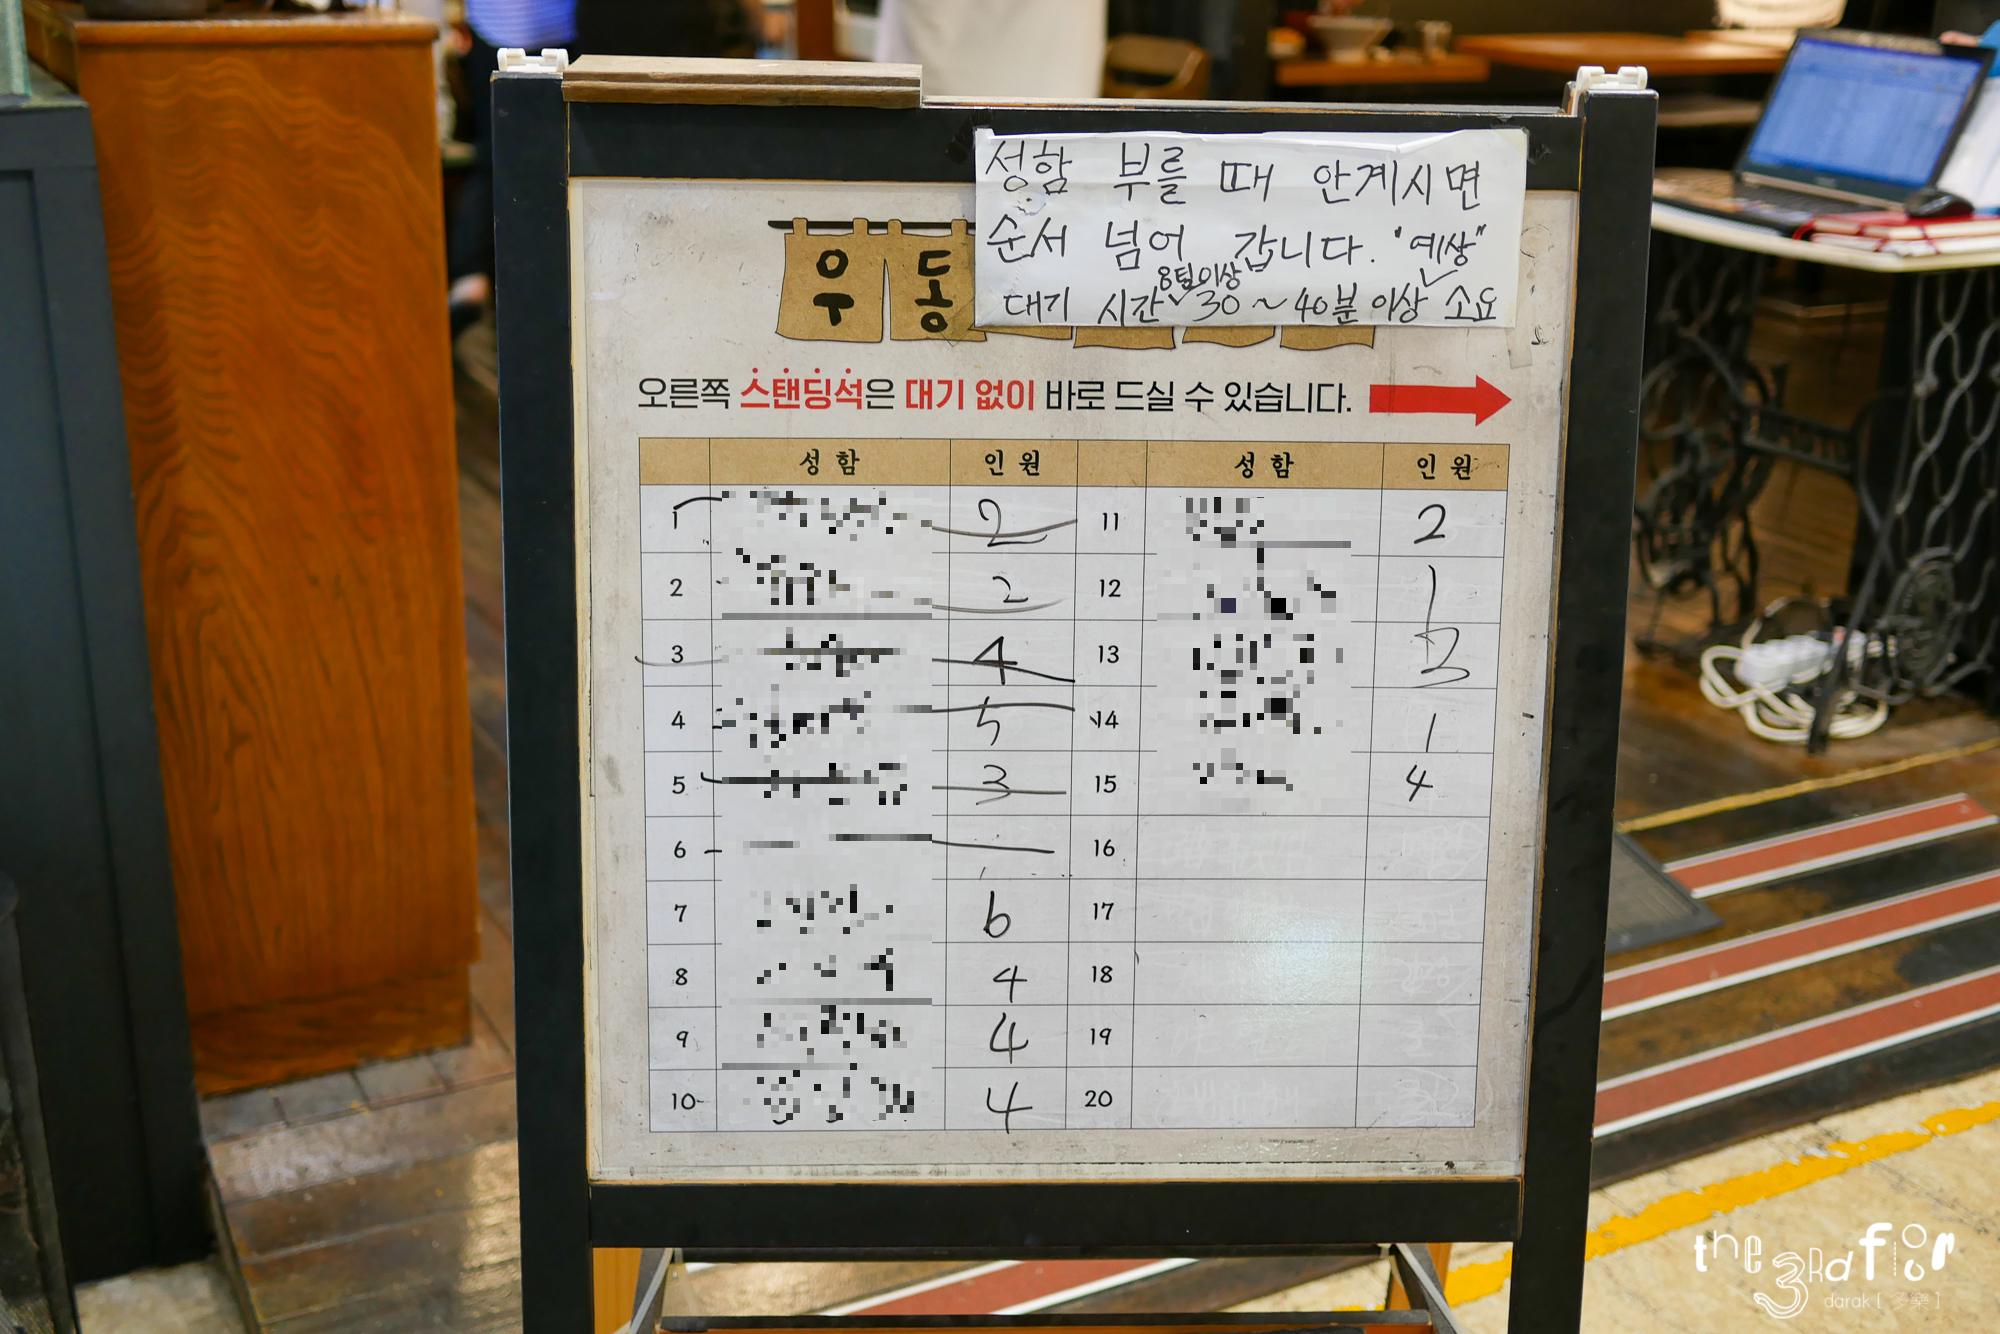 성함 부를 때 안계시면
순서 넘어 갑니다. "예상"
8팀이상
대기 시간 30~40분 이상 소요
우동
오른쪽 스탠딩석은 대기 없이 바로 드실 수 있습니다.
성함 인원 성함 인원
1 2 11 2
2 2 12 1
3 4 13 3
4 5 14 1
5 3 15 4
6 16
7 6 17
8 4 18
9 4 19
10 4 20
the 3rd floor
darak [ 多樂 ]